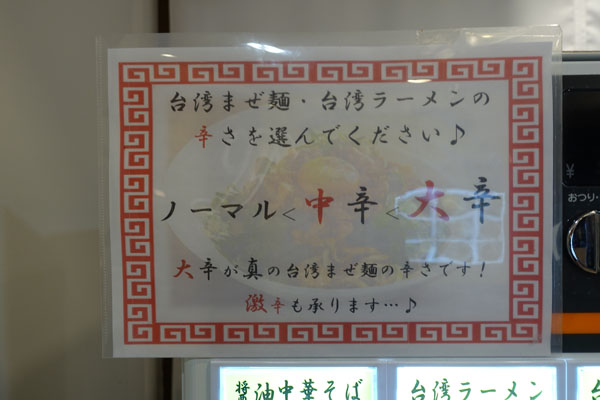 台湾まぜ麺・台湾ラーメンの
辛さを選んでください♪
ノーマル<中辛<大辛
大辛が真の台湾まぜ麺の辛さです!
激辛も承ります…♪
¥
おつり・
醤油中華そば
台湾ラーメン
台